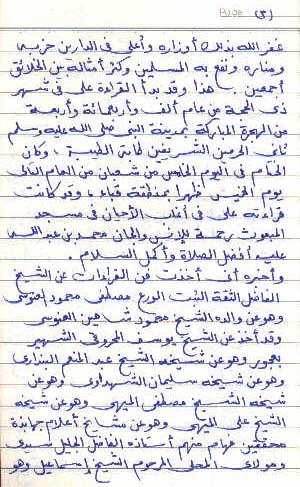 (٣)
غفر الله بذلك أوزاره وأعلى في الدارين
ومناره ونفع به المسلمين وكثر أمثاله بين الخلائق
أجمعين. هذا وقد بدأ القراءة على في شهر
ذى الحجة من عام ألف وأربعمائة وأربعة
من الهجرة المباركة بمدينة النبى صلى الله عليه وسلم
ثانى الحرمين الشريفين طابة الطيبة، وكان
الختام في اليوم الخامس من شعبان من العام التالى
يوم الخميس ظهرا بمنطقة قباء، وقد كانت
قراءته على في أغلب الأحيان في مسجد
المبعوث رحمة للإنس والجان محمد بن عبد الله
عليه أفضل الصلاة وأكمل السلام.
وأخبره أنى أخذت فن القراءات عن الشيخ
الفاضل الثقة الثبت الورع مصطفى محمود العنوسى
وهو عن والده الشيخ محمود شاهين العنوسى
وقد أخذ عن الشيخ يوسف الشهير
بعجور وهو عن شيخه الشيخ عبد المنعم البندارى
وهو عن شيخه سليمان الشهداوى وهو عن
شيخه الشيخ مصطفى الميهى وهو عن شيخه
الشيخ على الميهى وهو عن مشايخ أعلام جهابذة
محققين فهام منهم أستاذه الفاضل الجليل سيدى
ومولاى المحلى المرحوم الشيخ إسماعيل وهو